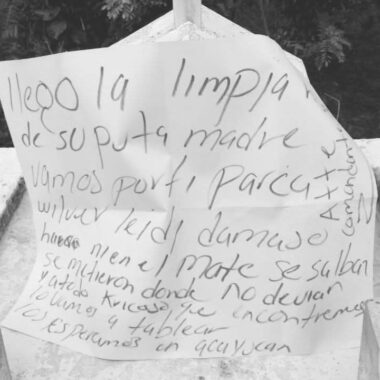 llego la limpia
de su puta madre
vamos por ti parca
wilver leidi damaso
ni en el mate se salban
se mitieron donde no devian
y atodo kricoso que encontremos
lo bamos a tablear
los esperamos en acayucan
Atte
comandant